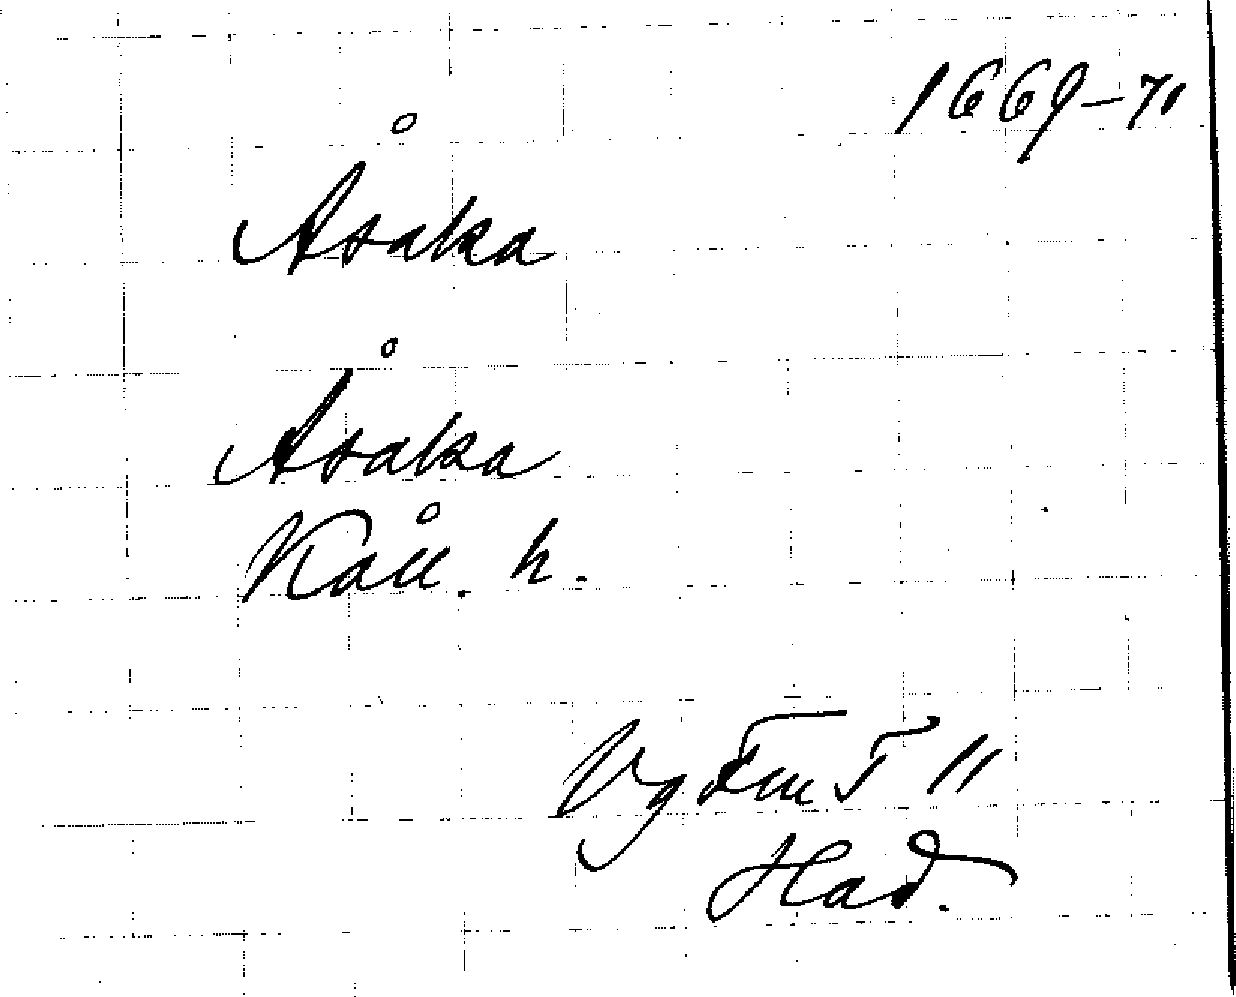 1669-71
Åsaka
Åsaka
Kåll. h.
Vg FmT 11
Had.